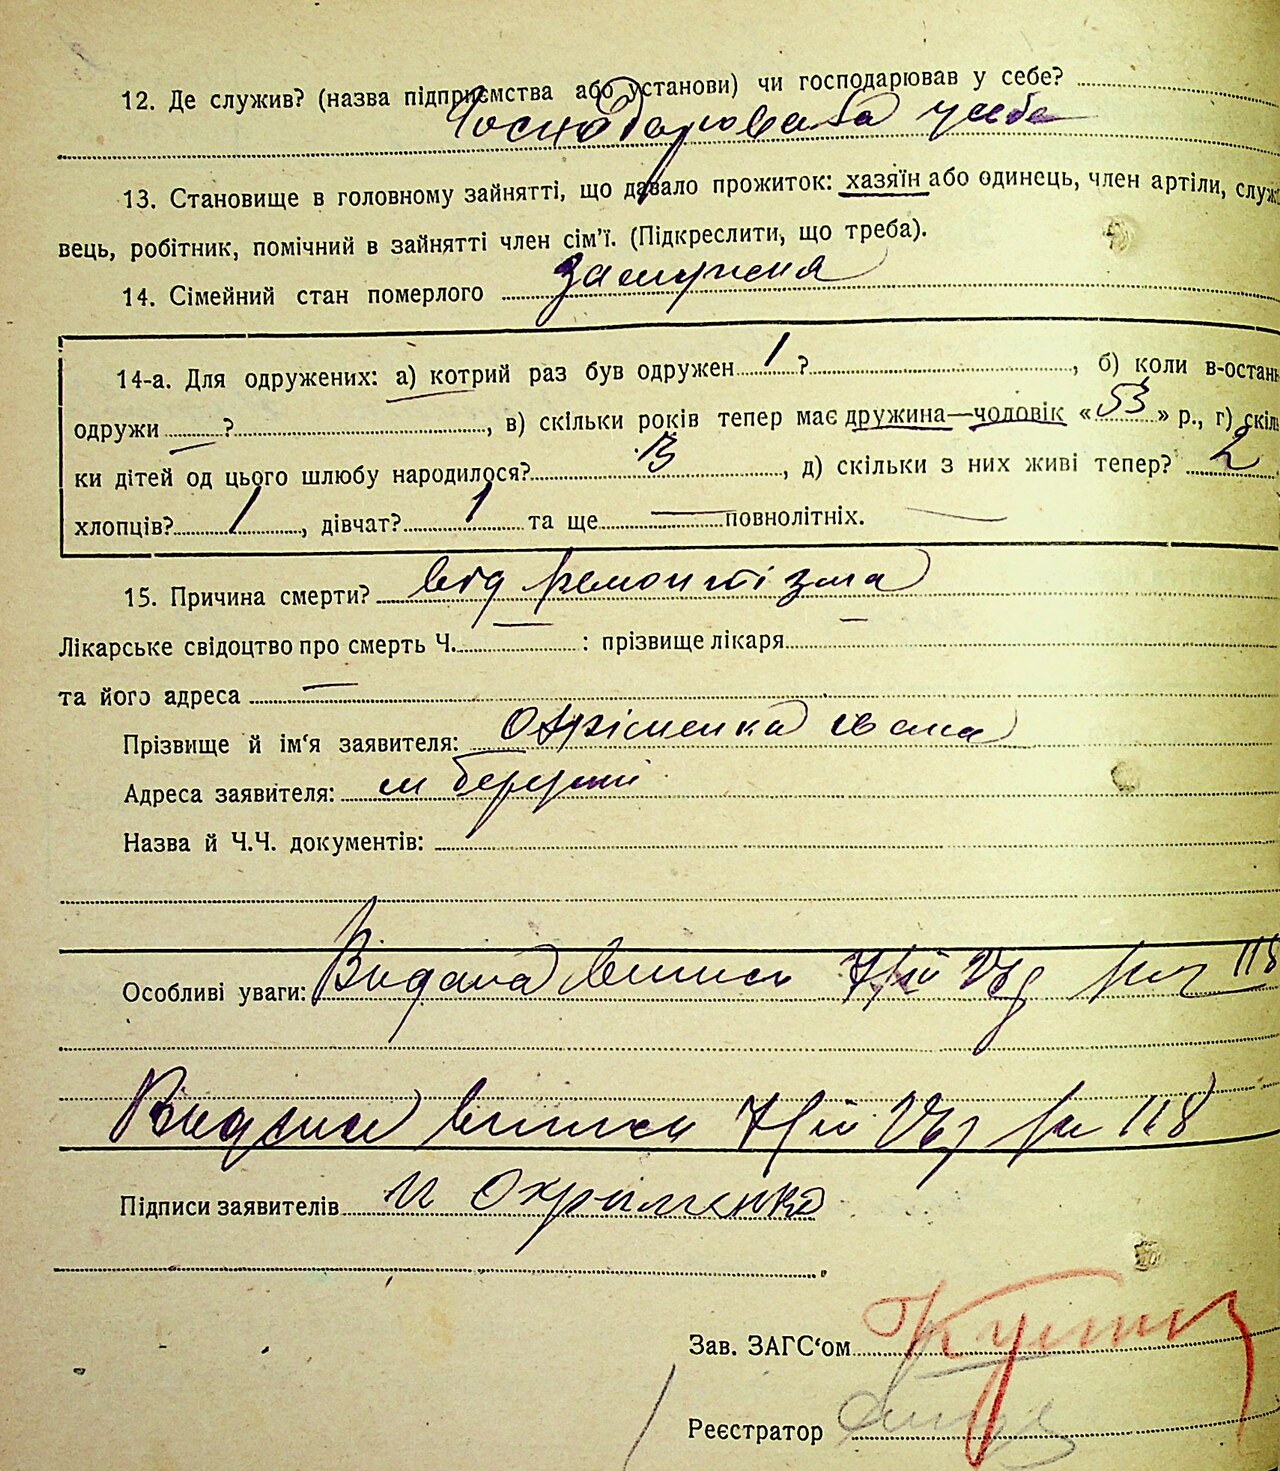 12. Де служив? (назва підприємства або установи) чи господарював у себе?
Господарювала у себе
13. Становище в головному зайнятті, що давало прожиток: хазяїн або одинець, член артіли, служ
вець, робітник, помічний в зайнятті член сім'ї. (Підкреслити, що треба).
14. Сімейний стан померлого замужня
14-а. Для одружених: а) котрий раз був одружен 1 ?, б) коли в-останн
одружи — ?, в) скільки років тепер має дружина—чоловік «53» р., г) скіль
ки дітей од цього шлюбу народилося? 13, д) скільки з них живі тепер? 2
хлопців? 1, дівчат? 1 та ще — повнолітніх. —
15. Причина смерти? від ремонтізма
Лікарське свідоцтво про смерть Ч. — : прізвище лікаря —
та його адреса —
Прізвище й ім'я заявителя: Охріменка Івана
Адреса заявителя: м
Назва й Ч.Ч. документів:
Особливі уваги: Видана випись 118
Видана виписи 118
Підписи заявителів И Охрименко
Зав. ЗАГС'ом
Реєстратор